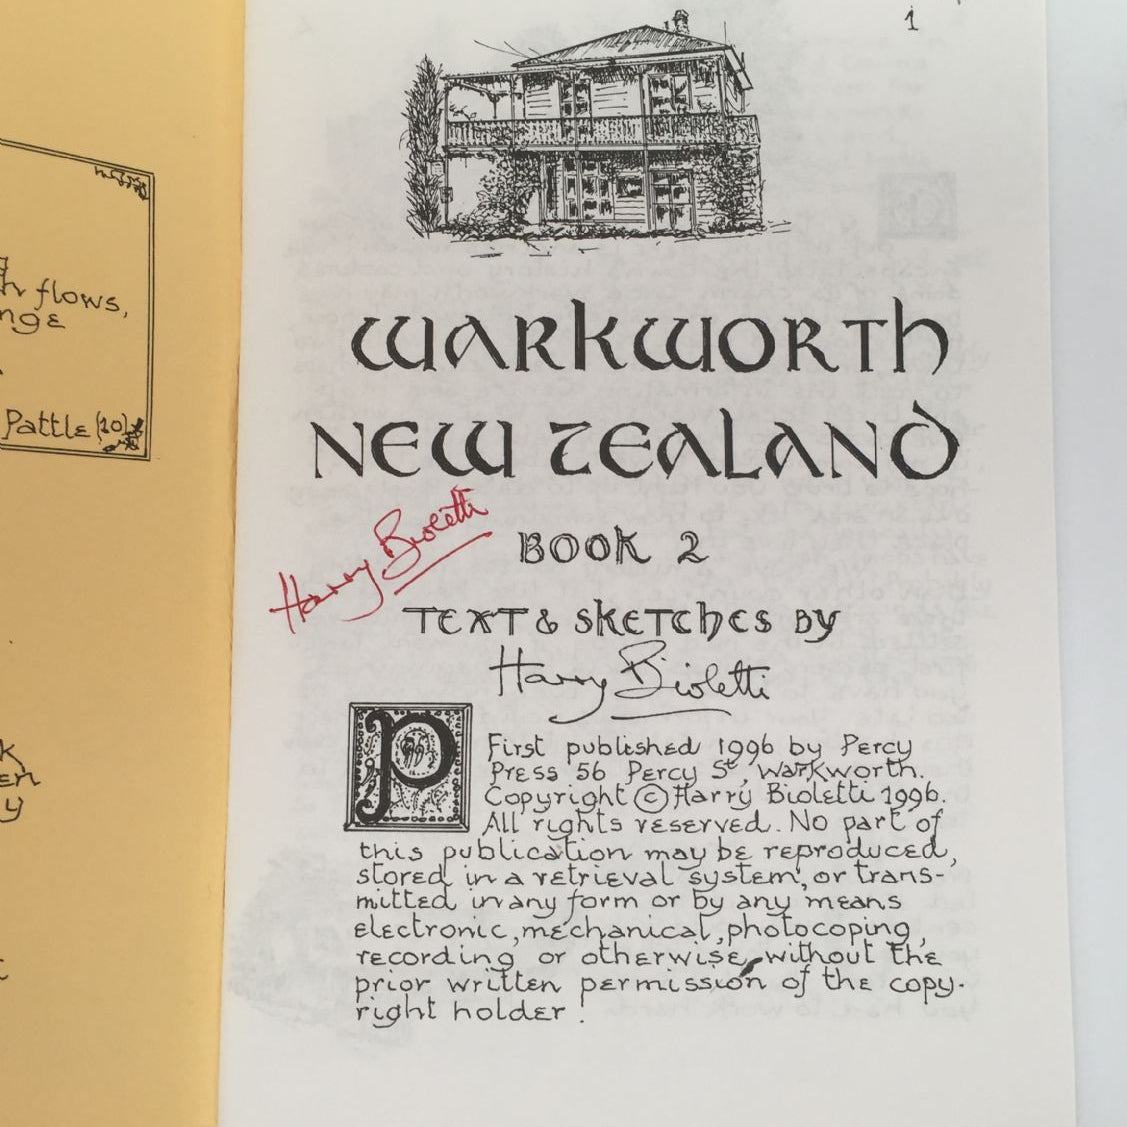 flows,
Pattle (10)
1
WARKWORTH
NEW ZEALAND
Harry Bioletti
BOOK 2
TEXT & SKETCHES BY
Harry Bioletti
P
First published 1996 by Percy
Press 56 Percy St, Warkworth.
Copyright © Harry Bioletti 1996.
All rights reserved. No part of
this publication may be reproduced,
stored in a retrieval system, or trans-
mitted in any form or by any means
electronic, mechanical, photocoping,
recording or otherwise, without the
prior written permission of the copy-
right holder!